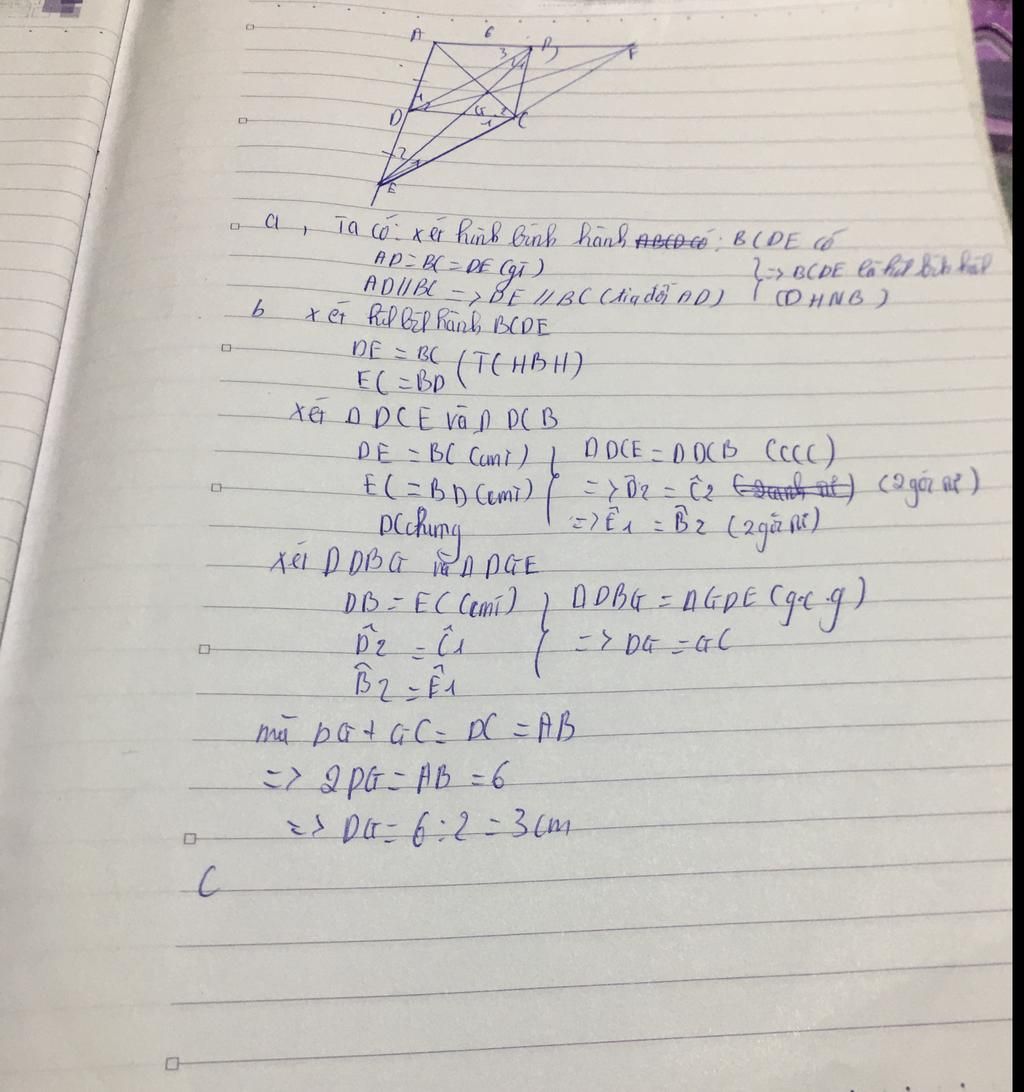 A 6 B F
3
1 2
D 1 C
2 1
E
a, Ta có: xét hình bình hành ABCD có: BCDE có
AD = BC = DE (gt)
AD // BC => DE // BC (tia đối AD) } => BCDE là hình bình hành (DHNB)
b xét hình bình hành BCDE
DE = BC
EC = BD (TCHBH)
xét Δ DCE và Δ DCB
DE = BC (cmt) } Δ DCE = Δ DCB (ccc)
EC = BD (cmt) => D̂2 = Ĉ2 (2 góc t/ư)
DC chung => Ê1 = B̂2 (2 góc t/ư)
xét Δ DBG và Δ DGE
DB = EC (cmt) } Δ DBG = Δ GDE (g.c.g)
D̂2 = Ĉ1 => DG = GC
B̂2 = Ê1
mà DG + GC = DC = AB
=> 2DG = AB = 6
=> DG = 6 : 2 = 3cm
C